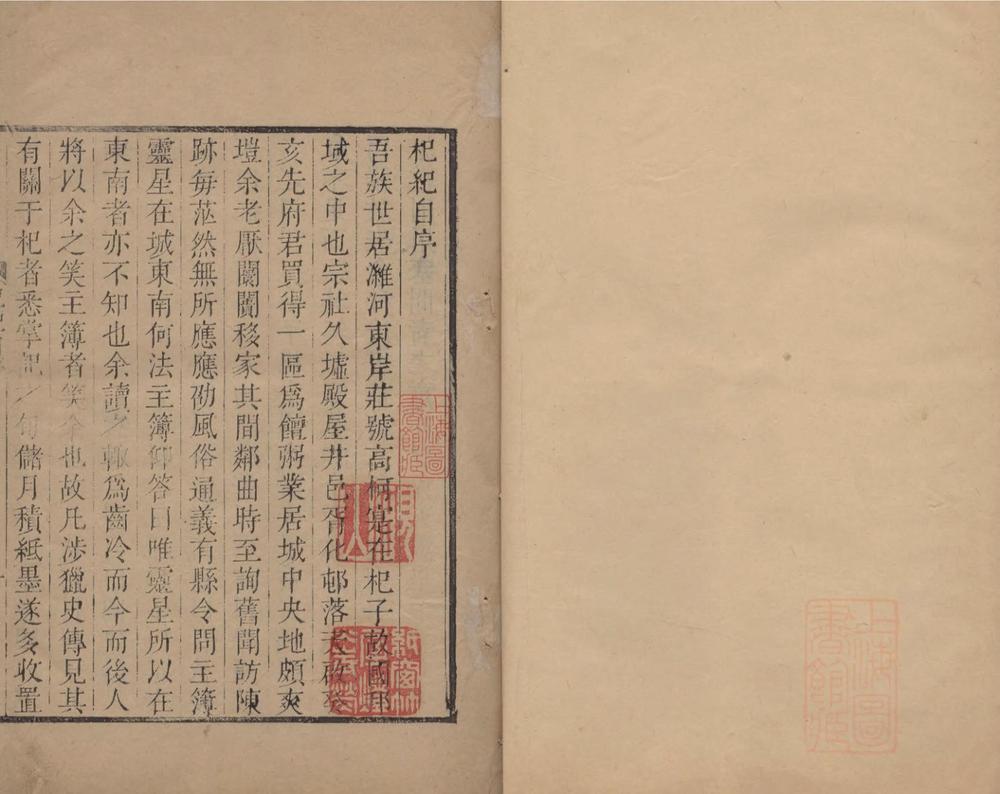 杞紀自序
吾族世居濰河東岸莊號高柯寔在杞子故國邦
域之中也宗社久墟殿屋井邑胥化邨落天啟癸
亥先府君買得一區爲饘粥業居城中央地頗爽
塏余老厭闤闠移家其間鄰曲時至詢舊聞訪陳
跡每茫然無所應應劭風俗通義有縣令問主簿
靈星在城東南何法主簿仰答曰唯靈星所以在
東南者亦不知也余讀之輒爲齒冷而今而後人
將以余之笑主簿者笑余也故凡涉獵史傳見其
有關于杞者悉掌記之旬儲月積紙墨遂多收置
上海圖
書館藏
上海圖
書館藏